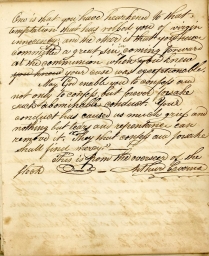 One is that you have hearkened to that
temptation that has robbed you of virgin
innocency and the other is that you have
committed a great sin coming forward
at the communion when you knew
you knew your case was exceptionable.
May God enable you to confess and
not only to confess but forever forsake
such abominable conduct. Your
conduct has caused us much grief and
nothing but tears and repentance can
remove it. They that confess and forsake
shall find mercy.
This is from the overseer of the
flock Arthur